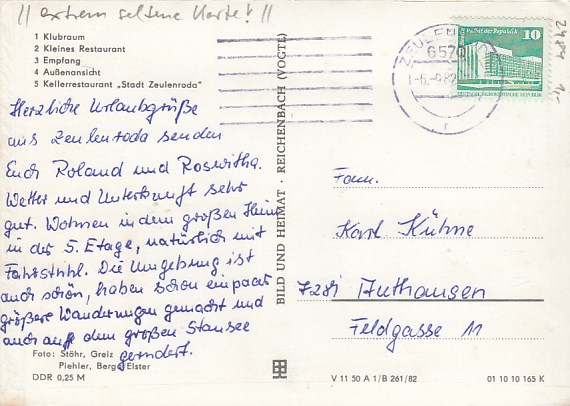 || extrem seltene Karte! ||
1 Klubraum
2 Kleines Restaurant
3 Empfang
4 Außenansicht
5 Kellerrestaurant „Stadt Zeulenroda"
Herzliche Urlaubsgrüße
aus Zeulenroda senden
Euch Roland und Roswitha.
Wetter und Unterkunft sehr
gut. Wohnen in dem großen Heim
in der 5. Etage, natürlich mit
Fahrstuhl. Die Umgebung ist
auch schön, haben schon ein paar
größere Wanderungen gemacht und
auch auf dem großen Stausee
gerudert.
Foto: Stöhr, Greiz
Piehler, Berga/Elster
DDR 0,25 M
BILD UND HEIMAT · REICHENBACH (VOGTL)
ZEULENRODA
6570
Palast der Republik
10
DEUTSCHE DEMOKRATISCHE REPUBLIK
2484
Fam.
Karl Kühne
7281 Authausen
Feldgasse 11
V 11 50 A 1/B 261/82
01 10 10 165 K